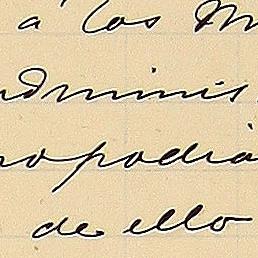 á los M
adminis
no podia
de ello